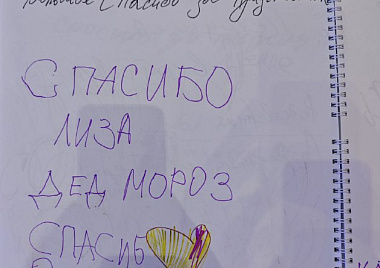 Спасибо за
СПАСИБО
ЛИЗА
ДЕД МОРОЗ
СПАСИБ